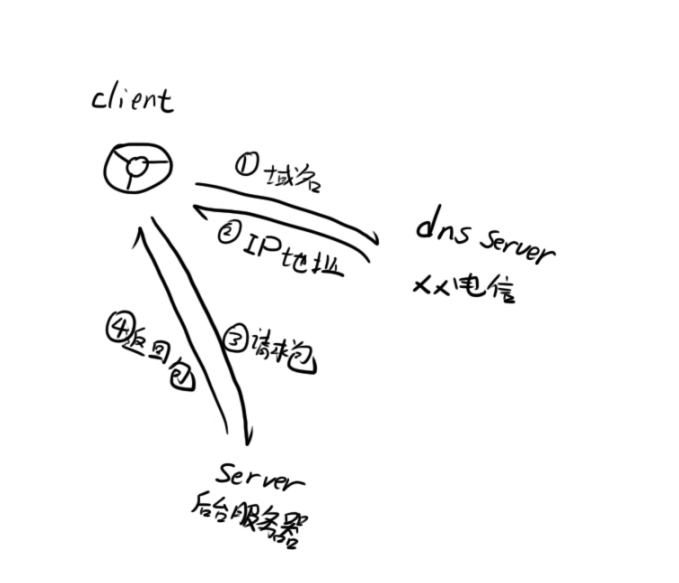 client
①域名
②IP地址
dns server
xx电信
③请求包
④返回包
Server
后台服务器